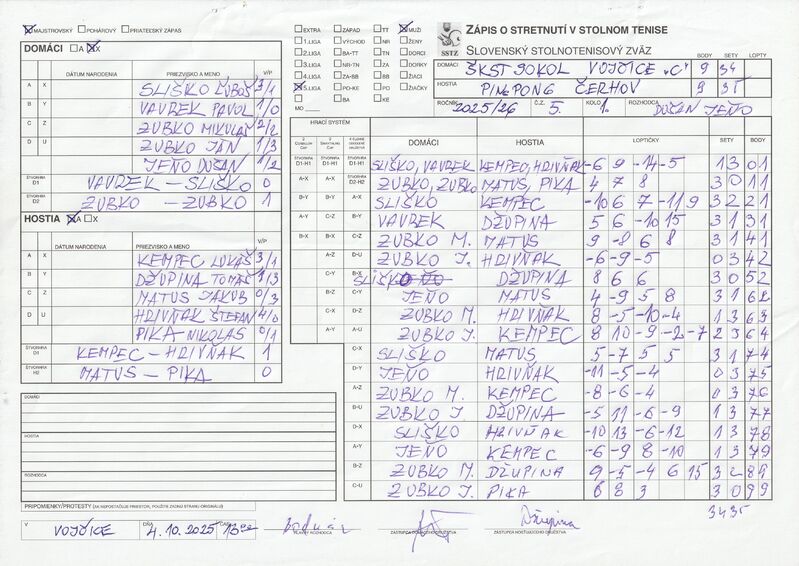 MAJSTROVSKÝ POHÁROVÝ PRIATEĽSKÝ ZÁPAS
DOMÁCI A X
DÁTUM NARODENIA PRIEZVISKO A MENO V/P
A X SLIŠKO ĽUBOŠ 3/1
B Y VAVREK PAVOL 1/0
C Z ZUBKO MIKULÁŠ 2/2
D U ZUBKO JÁN 1/3
JEŇO DUŠAN 1/2
ŠTVORHRA D1 VAVREK – SLIŠKO 0
ŠTVORHRA D2 ZUBKO – ZUBKO 1
HOSTIA A X
DÁTUM NARODENIA PRIEZVISKO A MENO V/P
A X KEMPEC LUKÁŠ 3/1
B Y DŽUPINA TOMÁŠ 1/3
C Z MATUS JAKUB 0/3
D U HRIVŇAK ŠTEFAN 4/0
PIKA NIKOLAS 0/1
ŠTVORHRA D1 KEMPEC – HRIVŇAK 1
ŠTVORHRA H2 MATUS – PIKA 0
DOMÁCI
HOSTIA
ROZHODCA
PRIPOMIENKY/PROTESTY (AK NEPOSTAČUJE PRIESTOR, POUŽITE ZADNÚ STRANU ORIGINÁLU)
V VOJČICE DŇA 4.10.2025 ČAS 13 00
HLAVNÝ ROZHODCA ZÁSTUPCA DOMÁCEHO DRUŽSTVA ZÁSTUPCA HOSŤUJÚCEHO DRUŽSTVA
EXTRA ZÁPAD TT MUŽI
1.LIGA VÝCHOD NR ŽENY
2.LIGA BA-TT TN DORCI
3.LIGA NR-TN ZA DORKY
4.LIGA ZA-BB BB ŽIACI
5.LIGA PO-KE PO ŽIAČKY
BA KE
MO
SSTZ
ZÁPIS O STRETNUTÍ V STOLNOM TENISE
SLOVENSKÝ STOLNOTENISOVÝ ZVÄZ
BODY SETY LOPTY
DOMÁCI ŠKST SOKOL VOJČICE „C“ 9 34
HOSTIA PINGPONG ČERHOV 9 35
ROČNÍK 2025/26 Č.Z. 5. KOLO 1. ROZHODCA DUŠAN JEŇO
HRACÍ SYSTÉM
DOMÁCI HOSTIA LOPTIČKY SETY BODY
ŠTVORHRA D1-H1 SLIŠKO, VAVREK KEMPEC, HRIVŇAK -6 9 -14 -5 1 3 0 1
A-X ŠTVORHRA D2-H2 ZUBKO, ZUBKO MATUS, PIKA 4 7 8 3 0 1 1
B-Y A-X SLIŠKO KEMPEC -10 6 7 -11 9 3 2 2 1
A-Y C-Z B-Y VAVREK DŽUPINA 5 6 -10 15 3 1 3 1
B-X C-Z ZUBKO M. MATUS 9 -8 6 8 3 1 4 1
A-Z D-U ZUBKO J. HRIVŇAK -6 -9 -5 0 3 4 2
C-Y A-Y SLIŠKO DŽUPINA 8 6 6 3 0 5 2
B-X JEŇO MATUS 4 -9 5 8 3 1 6 2
C-Z ZUBKO M. HRIVŇAK 8 -5 -10 -4 1 3 6 3
A-Y ZUBKO J. KEMPEC 8 10 -9 -2 -7 2 3 6 4
C-X SLIŠKO MATUS 5 -7 5 5 3 1 7 4
D-Y JEŇO HRIVŇAK -11 -5 -4 0 3 7 5
A-Z ZUBKO M. KEMPEC -8 -6 -4 0 3 7 6
B-U ZUBKO J. DŽUPINA -5 11 -6 -9 1 3 7 7
D-X SLIŠKO HRIVŇAK -10 13 -6 -12 1 3 7 8
A-Y JEŇO KEMPEC -6 -9 8 -10 1 3 7 9
B-Z ZUBKO M. DŽUPINA 9 -5 -4 6 15 3 2 8 9
C-U ZUBKO J. PIKA 6 8 3 3 0 9 9
34 35